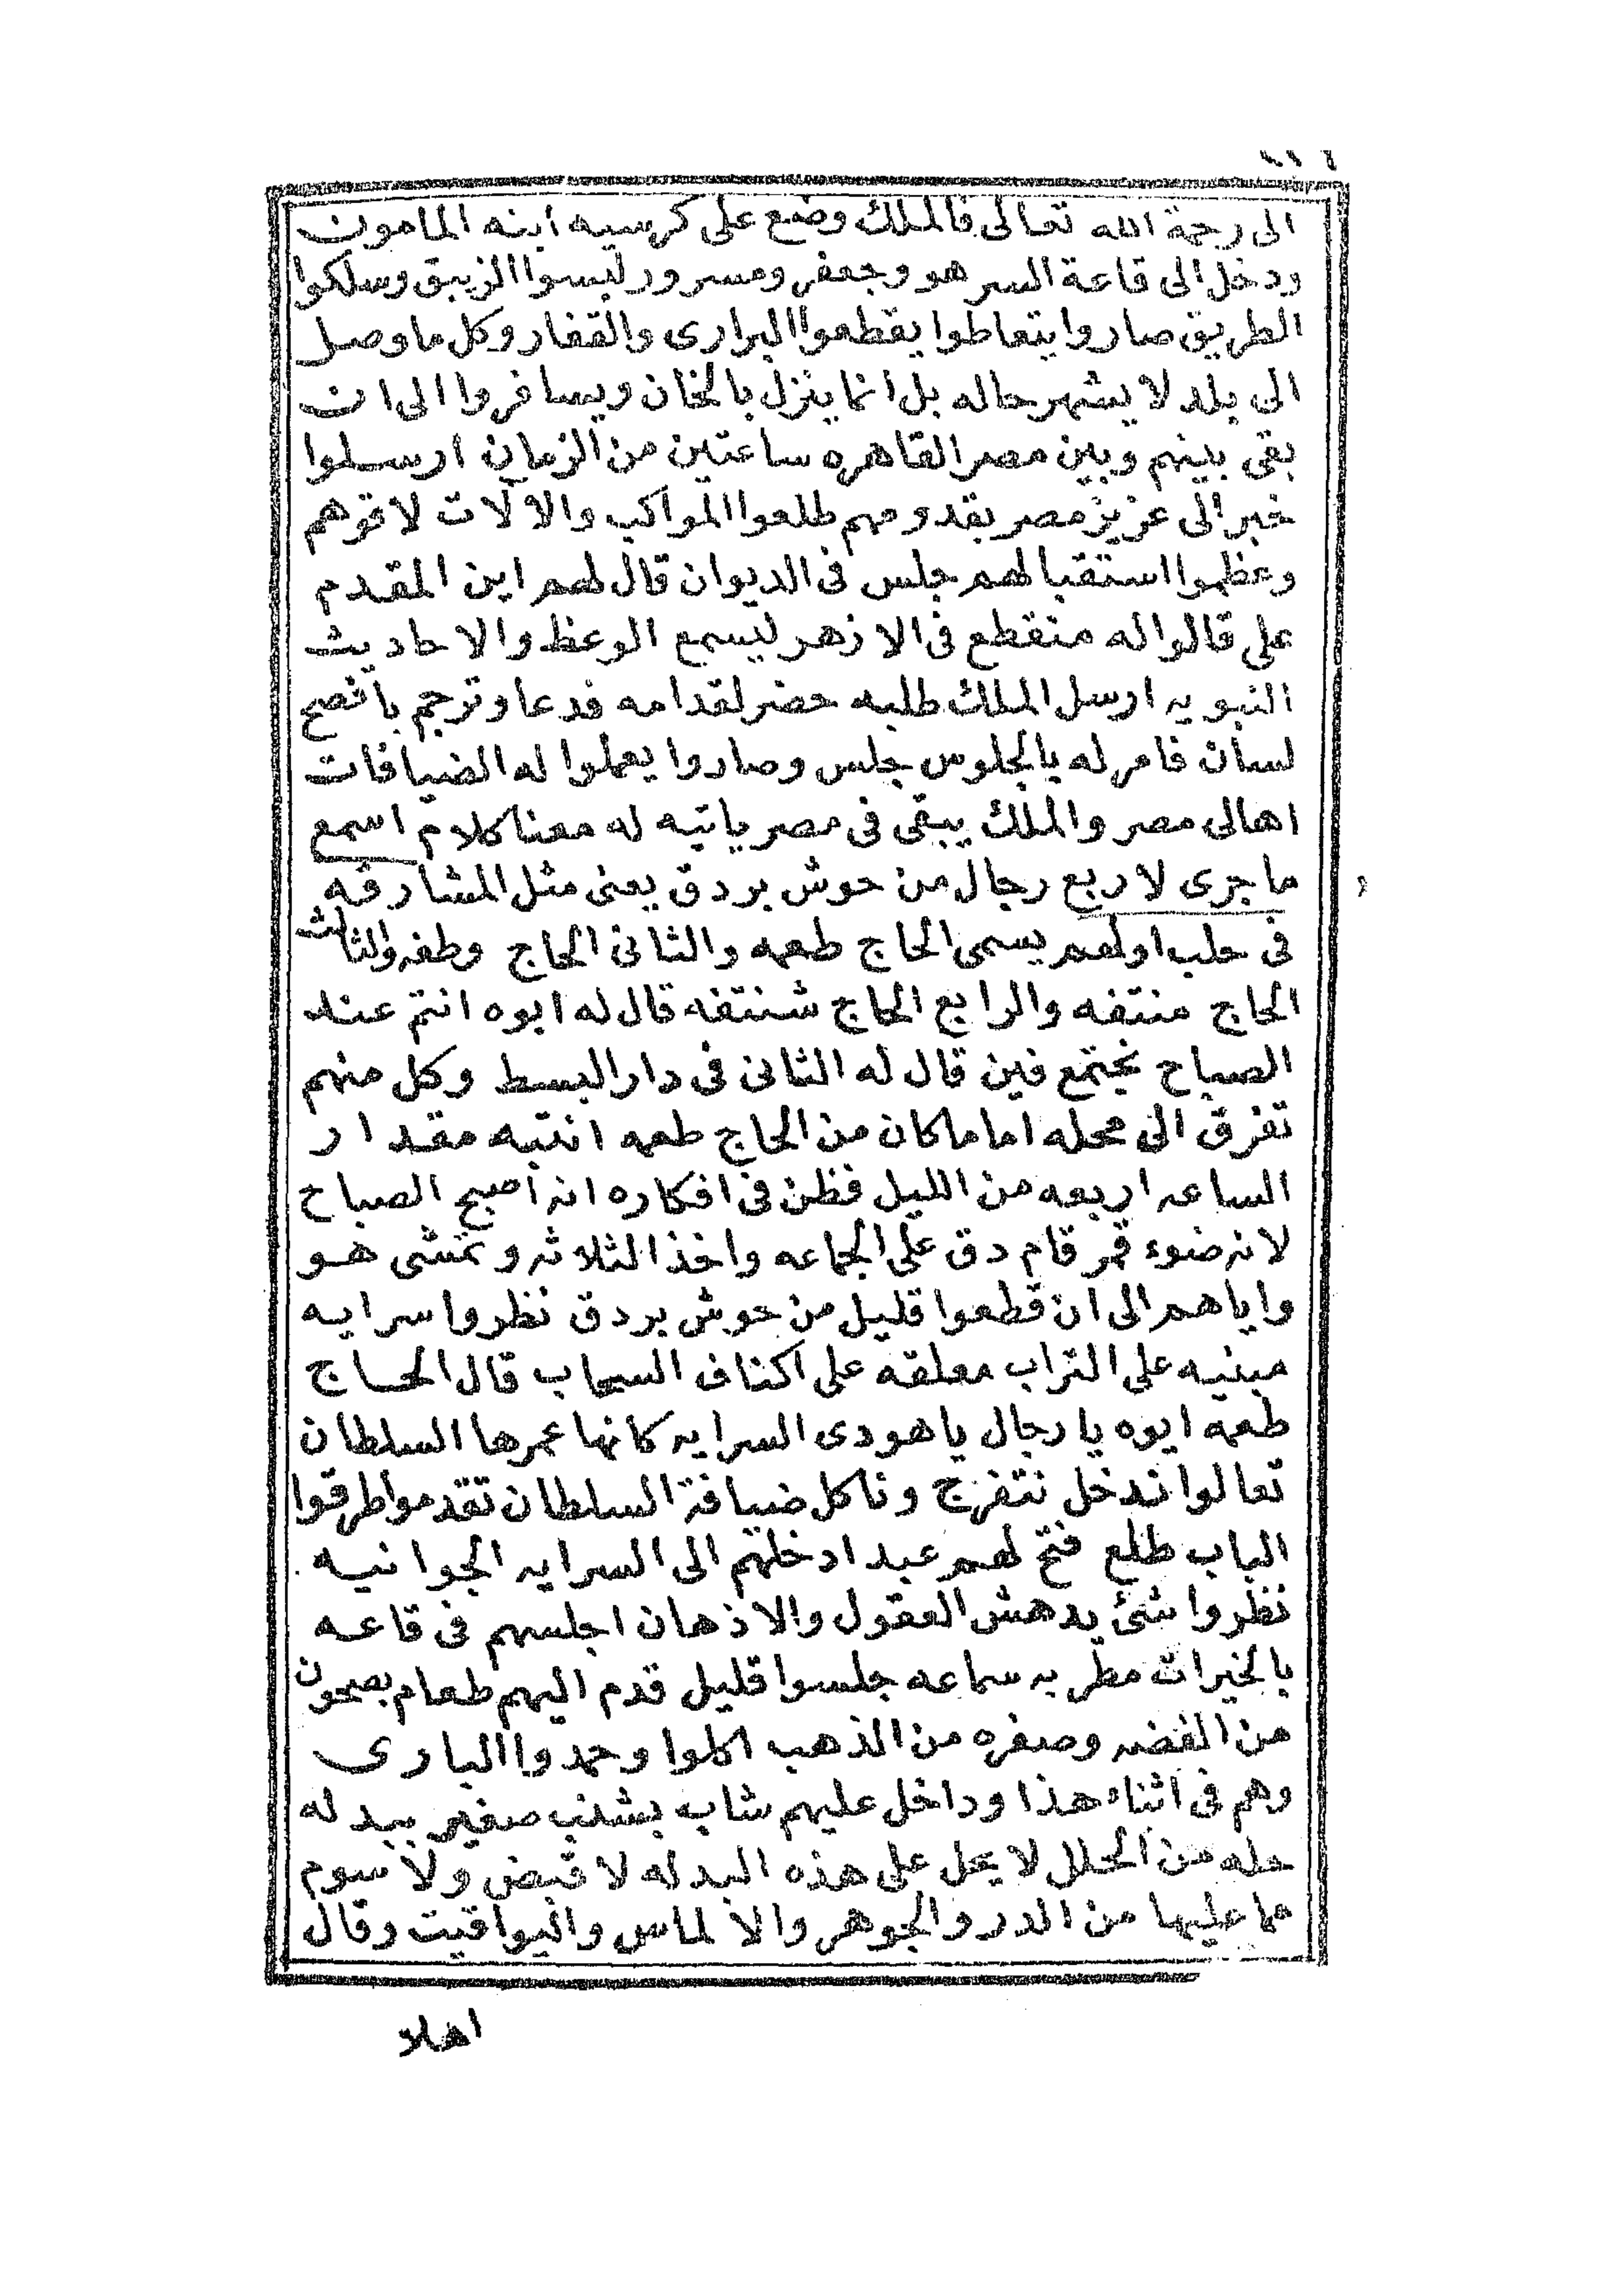 الى رحمة الله تعالى فالملك وضع على كرسيه ابنه المامون
ودخل الى قاعة السر هو وجعفر ومسرور لبسوا الزيبق وسلكوا
الطريق صاروا يتعاطوا يقطعوا البرارى والقفار وكل ما وصل
الى بلد لا يشهر حاله بل انما ينزل بالخان ويسافروا الى ان
بقى بينهم وبين مصر القاهره ساعتين من الزمان ارسلوا
خبر الى عزيز مصر بقدومهم طلعوا المواكب والالات لاقوهم
وعظموا استقبالهم جلس فى الديوان قال لهم اين المقدم
على قالوا له منقطع فى الازهر ليسمع الوعظ والاحاديث
النبويه ارسل الملك طلبه حضر لقدامه فدعا وترجم بافصح
لسان فامر له بالجلوس جلس وصاروا يعملوا له الضيافات
اهالى مصر والملك يبقى فى مصر ياتيه له معنا كلام اسمع
ما جرى لاربع رجال من حوش بردق يعنى مثل المشارقه
فى حلب اولهم يسمى الحاج طعمه والثانى الحاج وطفه والثالث
الحاج منتفه والرابع الحاج شنتفه قال له ابوه انتم عند
الصباح نجتمع فين قال له الثانى فى دار البسط وكل منهم
تفرق الى محله اما ما كان من الحاج طعمه انتبه مقدار
الساعه اربعه من الليل فظن فى افكاره انه اصبح الصباح
لانه ضوء قمر قام دق على الجماعه واخذ الثلاثه وتمشى هو
واياهم الى ان قطعوا قليل من حوش بردق نظروا سرايه
مبنيه على التراب معلقه على اكناف السحاب قال الحاج
طعمه ايوه يا رجال يا هودى السرايه كانها عمرها السلطان
تعالوا ندخل نتفرج وناكل ضيافة السلطان تقدموا طرقوا
الباب طلع فتح لهم عبد ادخلهم الى السرايه الجوانيه
نظروا شئ يدهش العقول والاذهان اجلسهم فى قاعه
بالخيرات مطربه سماعه جلسوا قليل قدم اليهم طعام بصحون
من الفضه وصفره من الذهب اكلوا وحمدوا البارى
وهم فى اثناء هذا وداخل عليهم شاب بشنب صغير ببدله
حله من الحلل لا يحل على هذه البدله لا قبض ولا سوم
مما عليها من الدر والجوهر والالماس واليواقيت وقال
اهلا